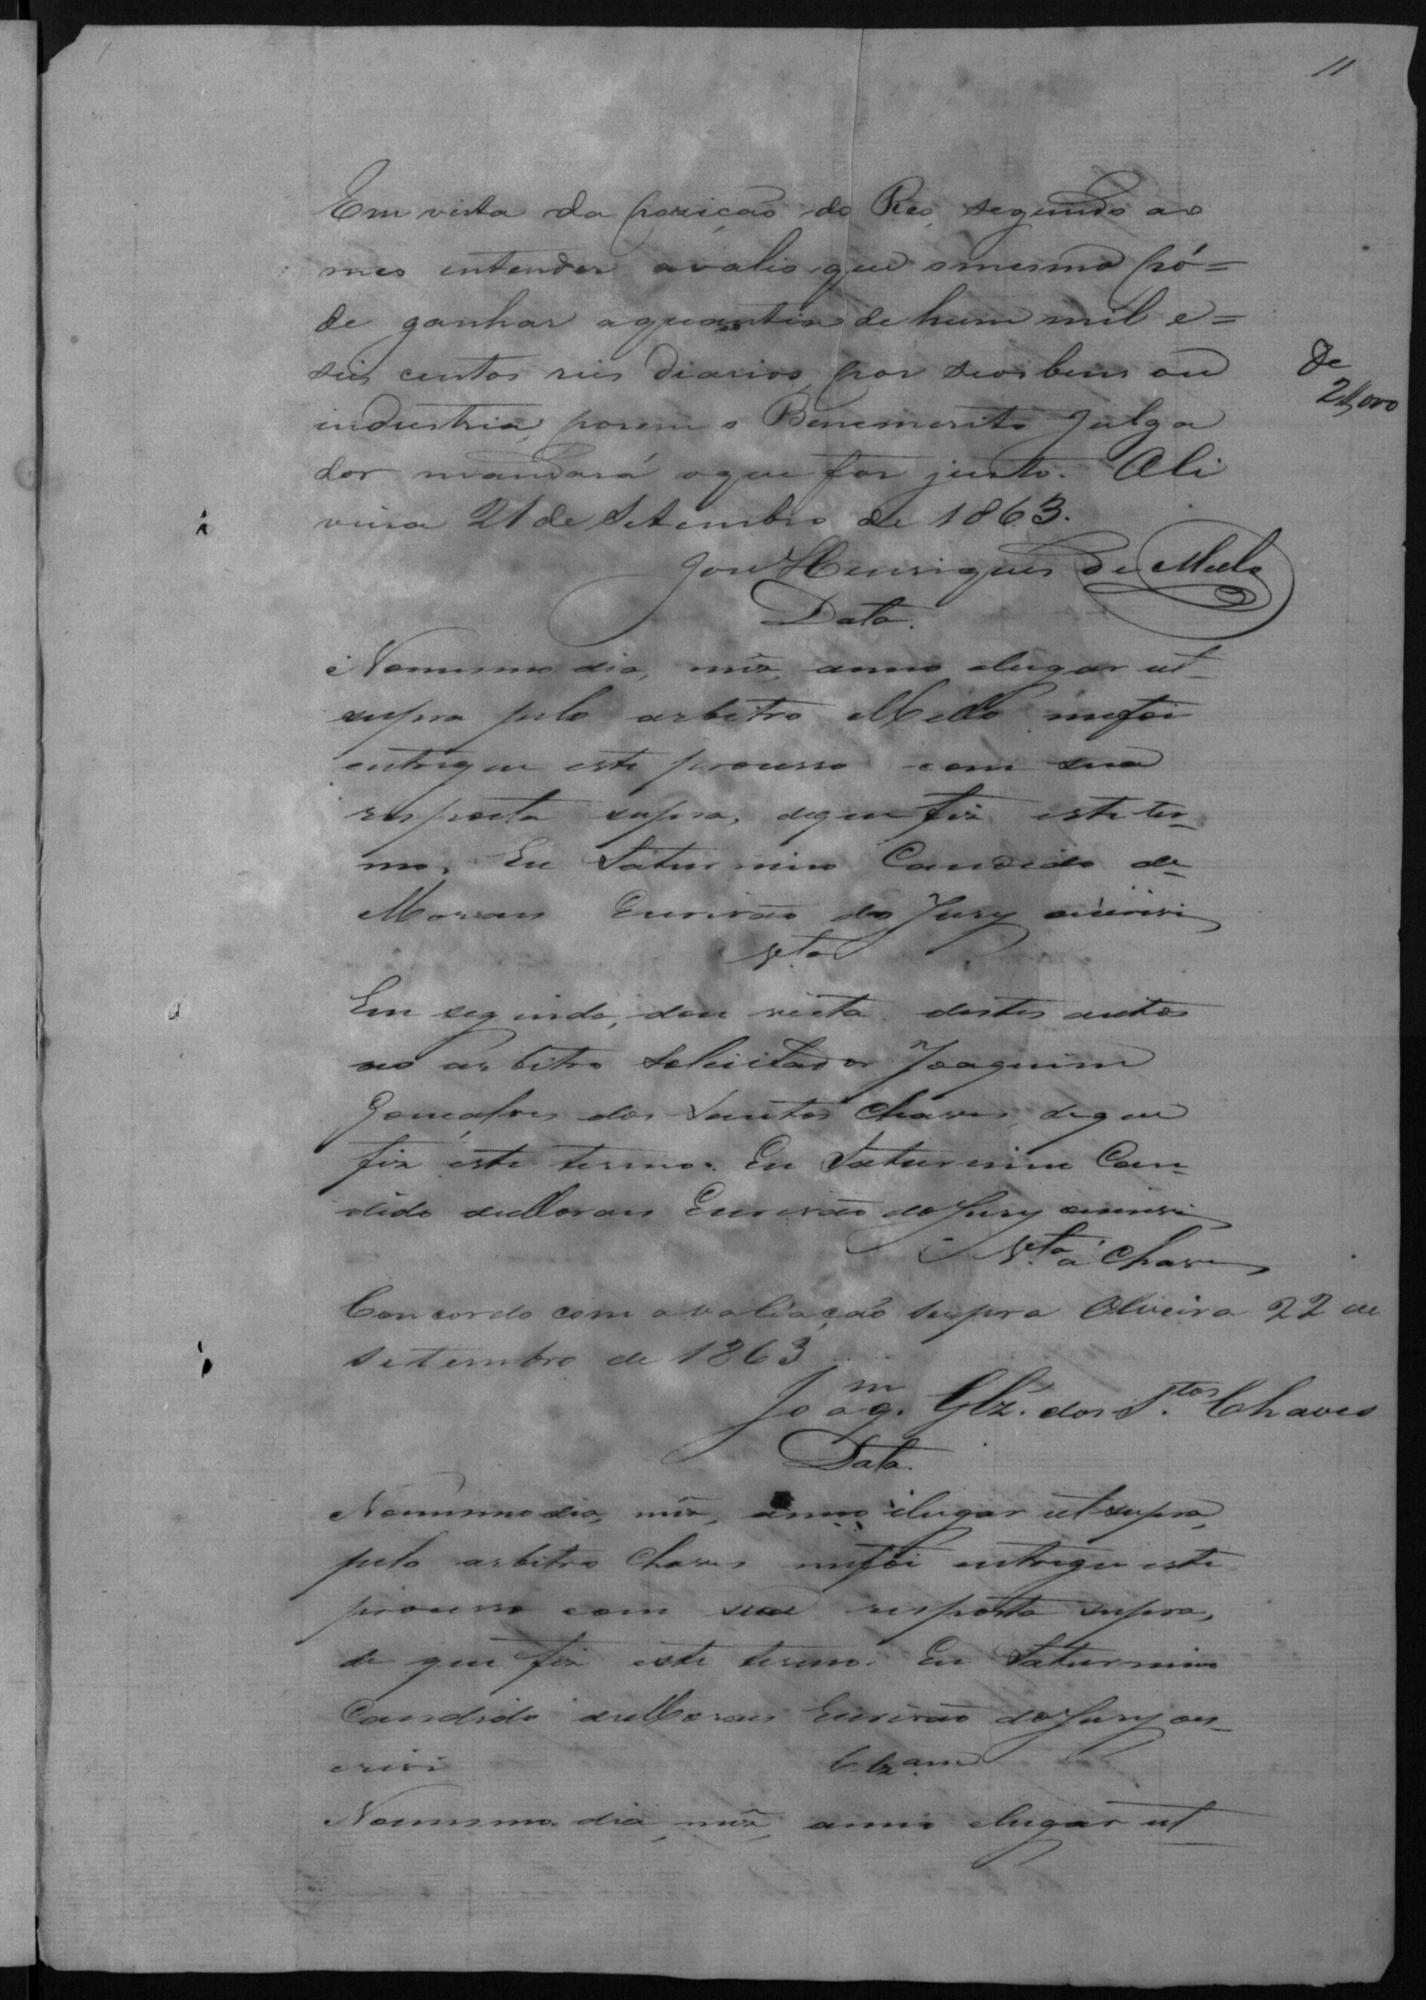 11
Em vista da pozição do Reo, segundo ao
meo entender avalio que o mesmo pó=
de ganhar a quantia de hum mil e=
seis centos reis diarios, por seos bens ou
industria, porem o Benemerito Julga
dor mandará o que for justo. Oli
veira 21 de Setembro de 1863.
José Henriques de Mello
De
2$000
Data.
No mesmo dia, mez, anno e lugar ut
supra pelo arbitro Mello me foi
entregue este processo com sua
resposta supra, de que fiz este ter-
mo. Eu Saturnino Candido de
Moraes Escrivão do Jury escrevi
Vta
Em seguida, dou vista destes autos
ao arbitro Solicitador Joaquim
Gonçalves dos Santos Chaves, de que
fiz este termo. Eu Saturnino Can-
dido de Moraes Escrivão do Jury escrevi
Vta a Chaves
Concordo com avaliação supra Oliveira 22 de
Setembro de 1863
Joaqm. Glz. dos Stos. Chaves
Data.
No mesmo dia, mez, anno e lugar ut supra,
pelo arbitro Chaves me foi entregue este
processo com sua resposta supra,
de que fiz este termo. Eu Saturnino
Candido de Moraes Escrivão do Jury es-
crevi
Clzam
No mesmo dia, mez, anno e lugar ut